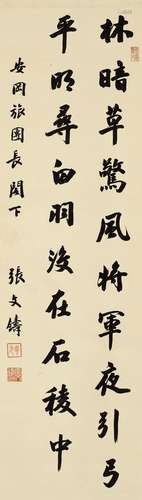 林暗草驚風將軍夜引弓
平明尋白羽沒在石稜中
安岡旅團長閣下
張文鑄